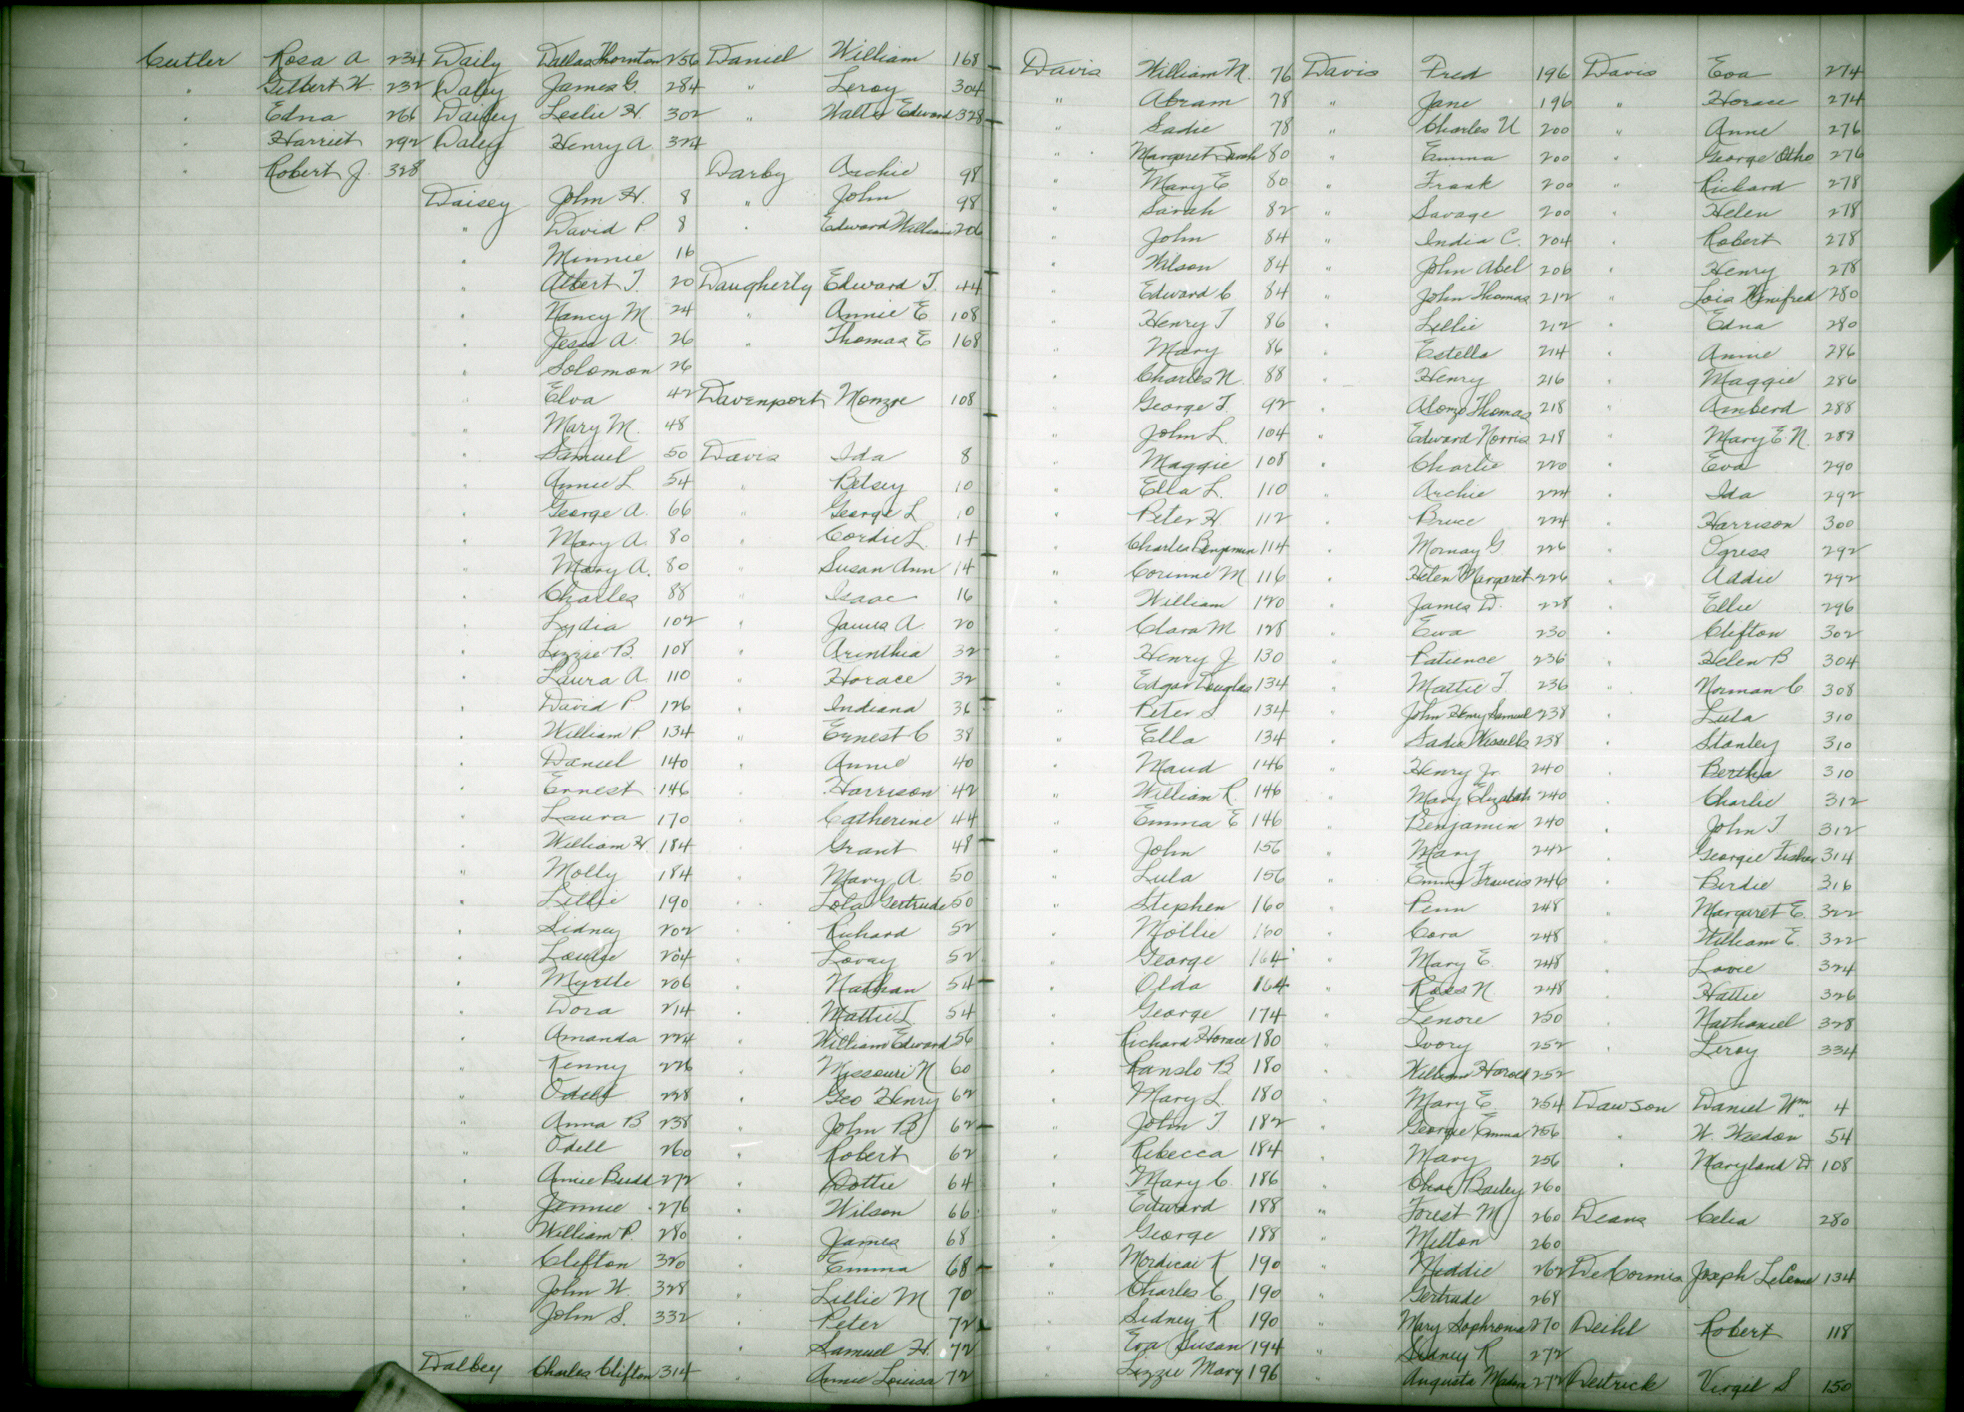 Cutler Rosa A. 234
" Gilbert W. 232
" Edna 266
" Harriet 292
" Robert J. 328
Daily Dallas Thornton 256
Daley James G. 284
Dailey Leslie H. 302
Daley Henry A. 324
Daisey John H. 8
" David P 8
" Minnie 16
" Albert T. 20
" Nancy M 24
" Jesse A. 26
" Solomon 26
" Elva 42
" Mary M. 48
" Samuel 50
" Annie L 54
" George A. 66
" Mary A. 80
" Mary A. 80
" Charles 88
" Lydia 102
" Lizzie B 108
" Laura A. 110
" David P. 126
" William P 134
" Daniel 140
" Ernest 146
" Laura 170
" William H. 184
" Molly 184
" Lillie 190
" Sidney 202
" Louise 204
" Myrtle 206
" Dora 214
" Amanda 224
" Kenny 226
" Odell 228
" Anna B 238
" Odell 260
" Annie Budd 272
" Jennie 276
" William P. 280
" Clifton 320
" John W. 328
" John S. 332
Dalbey Charles Clifton 314
Daniel William 168
" Leroy 304
" Walter Edward 328
Darby Archie 98
" John 98
" Edward William 206
Daugherty Edward T. 44
" Annie E 108
" Thomas E 168
Davenport Monzoe 108
Davis Ida 8
" Betsey 10
" George L 10
" Cordie L. 14
" Susan Ann 14
" Isaac 16
" James A 20
" Arinthia 32
" Horace 32
" Indiana 36
" Ernest C 38
" Annie 40
" Harrison 42
" Catherine 44
" Grant 48
" Mary A. 50
" Lola Gertrude 50
" Richard 52
" Lovay 52
" Nathan 54
" Mattie L 54
" William Edward 56
" Missouri N 60
" Geo Henry 62
" John B 62
" Robert 62
" Dottie 64
" Wilson 66
" James 68
" Emma 68
" Lillie M 70
" Peter 72
" Samuel H. 72
" Annie Louisa 72
Davis William M. 76
" Abram 78
" Sadie 78
" Margaret Sarah 80
" Mary E 80
" Sarah 82
" John 84
" Wilson 84
" Edward C 84
" Henry T 86
" Mary 86
" Charles N. 88
" George T. 92
" John L. 104
" Maggie 108
" Ella L. 110
" Peter H. 112
" Charles Benjamin 114
" Corinne M 116
" William 120
" Clara M 128
" Henry J 130
" Edgar Douglas 134
" Peter S 134
" Ella 134
" Maud 146
" William R. 146
" Emma E 146
" John 156
" Lula 156
" Stephen 160
" Mollie 160
" George 164
" Olda 164
" George 174
" Richard Horace 180
" Ranslo B 180
" Mary L. 180
" John T 182
" Rebecca 184
" Mary C. 186
" Edward 188
" George 188
" Mordicai K 190
" Charles C. 190
" Sidney R 190
" Eva Susan 194
" Lizzie Mary 196
Davis Fred 196
" Jane 196
" Charles U 200
" Emma 200
" Frank 200
" Savage 200
" India C. 204
" John Abel 206
" John Thomas 212
" Lillie 212
" Estella 214
" Henry 216
" Alonzo Thomas 218
" Edward Norris 218
" Charlie 220
" Archie 224
" Bruce 224
" Mornay G. 226
" Helen Margaret 226
" James D. 228
" Eva 230
" Patience 236
" Mattie T. 236
" John Henry Samuel 238
" Sadie Wessells 238
" Henry Jr. 240
" Mary Elizabeth 240
" Benjamin 240
" Mary 242
" Emma Francis 246
" Penn 248
" Cora 248
" Mary E. 248
" Ross N 248
" Lenore 250
" Ivory 252
" William Harold 252
" Mary E 254
" Georgie Emma 256
" Mary 256
" Chas Bailey 260
" Forest M 260
" Milton 260
" Meddie 262
" Gertrude 268
" Mary Sophronia 270
" Sidney R 272
" Augusta 272
Davis Eva 274
" Horace 274
" Anne 276
" George Otho 276
" Richard 278
" Helen 278
" Robert 278
" Henry 278
" Lois Winifred 280
" Edna 280
" Annie 286
" Maggie 286
" Amberd 288
" Mary E. N. 288
" Eva 290
" Ida 292
" Harrison 300
" Ogress 292
" Addie 292
" Ellie 296
" Clifton 302
" Helen B 304
" Norman C 308
" Lula 310
" Stanley 310
" Bertha 310
" Charlie 312
" John T 312
" Georgie Fisher 314
" Birdie 316
" Margaret E. 322
" William E. 322
" Lovie 324
" Hattie 326
" Nathaniel 328
" Leroy 334
Dawson Daniel Wm 4
" W. Weedon 54
" Maryland D 108
Deans Celia 280
DeCormis Joseph 134
Deihl Robert 118
Deitrick Virgil S 150